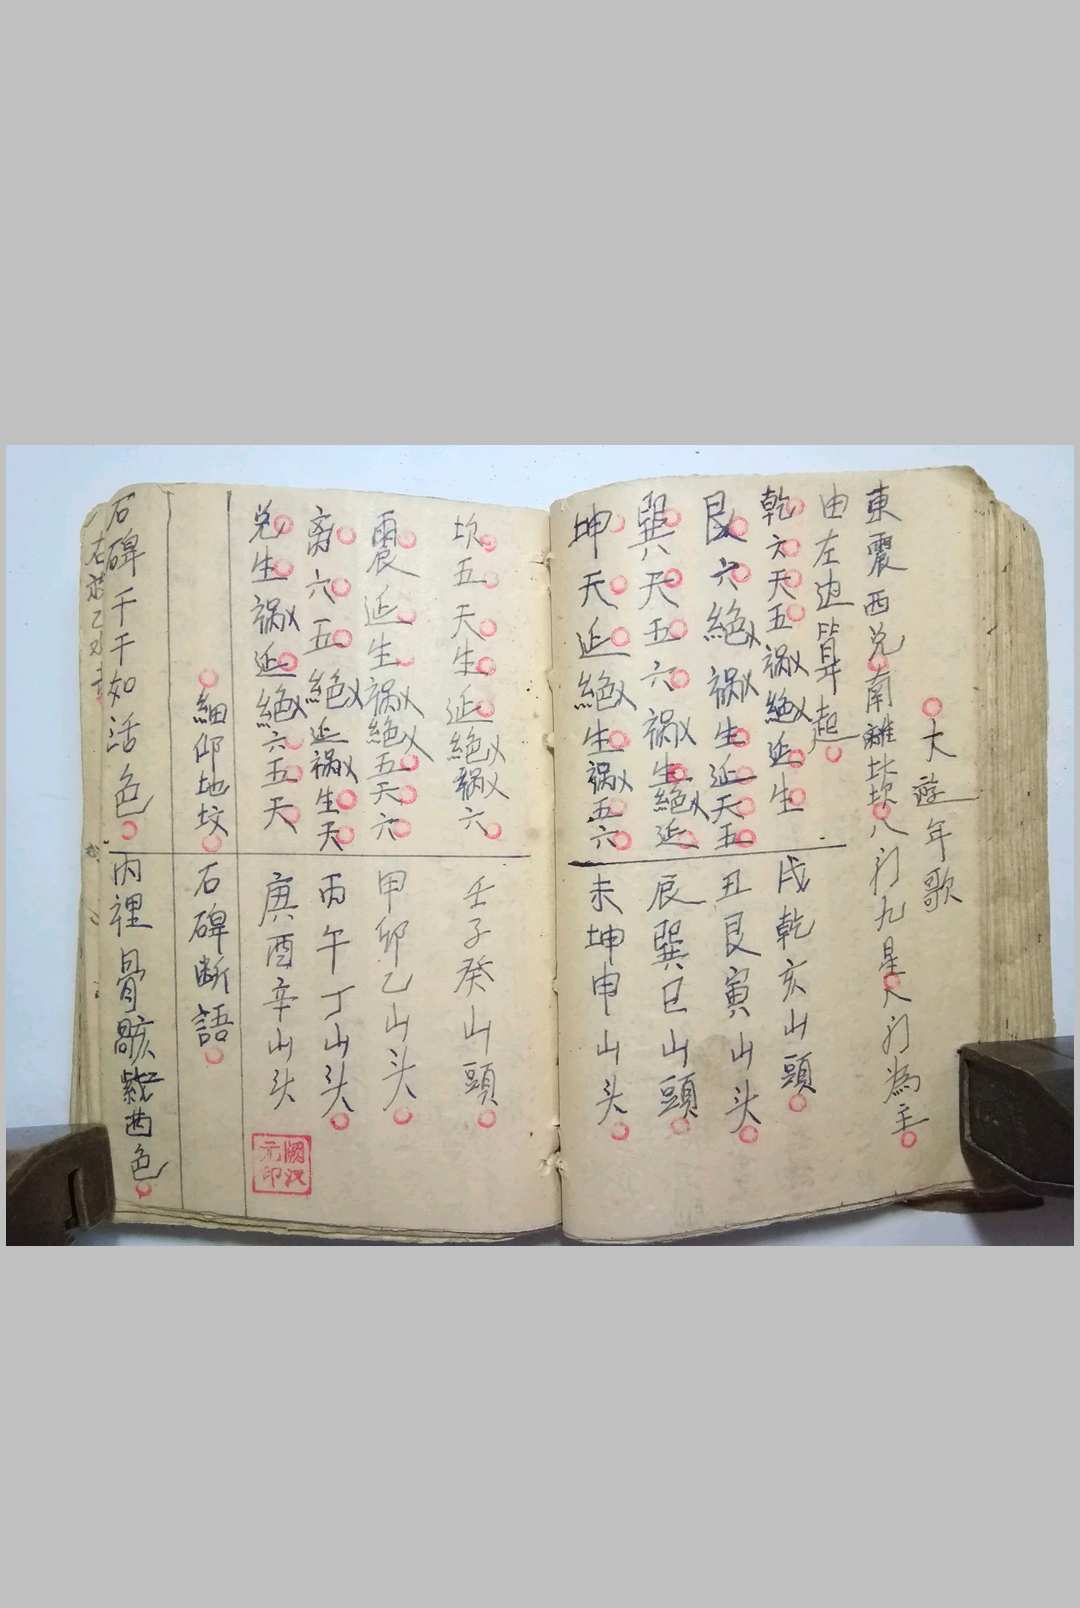 大遊年歌
東震西兑南離北坎八门九星人门為主
由左边算起
乾六天五禍絕延生
戌乾亥山頭
艮六絕禍生延天五
丑艮寅山头
巽天五六禍生絕延
辰巽巳山頭
坤天延絕生禍五六
未坤申山头
坎五天生延絕禍六
壬子癸山頭
震延生禍絕五天六
甲卯乙山头
离六五絕延禍生天
丙午丁山头
兑生禍延絕六五天
庚酉辛山头
細仰地坟
石碑断語
石碑干干如活色
内裡骨骸
色